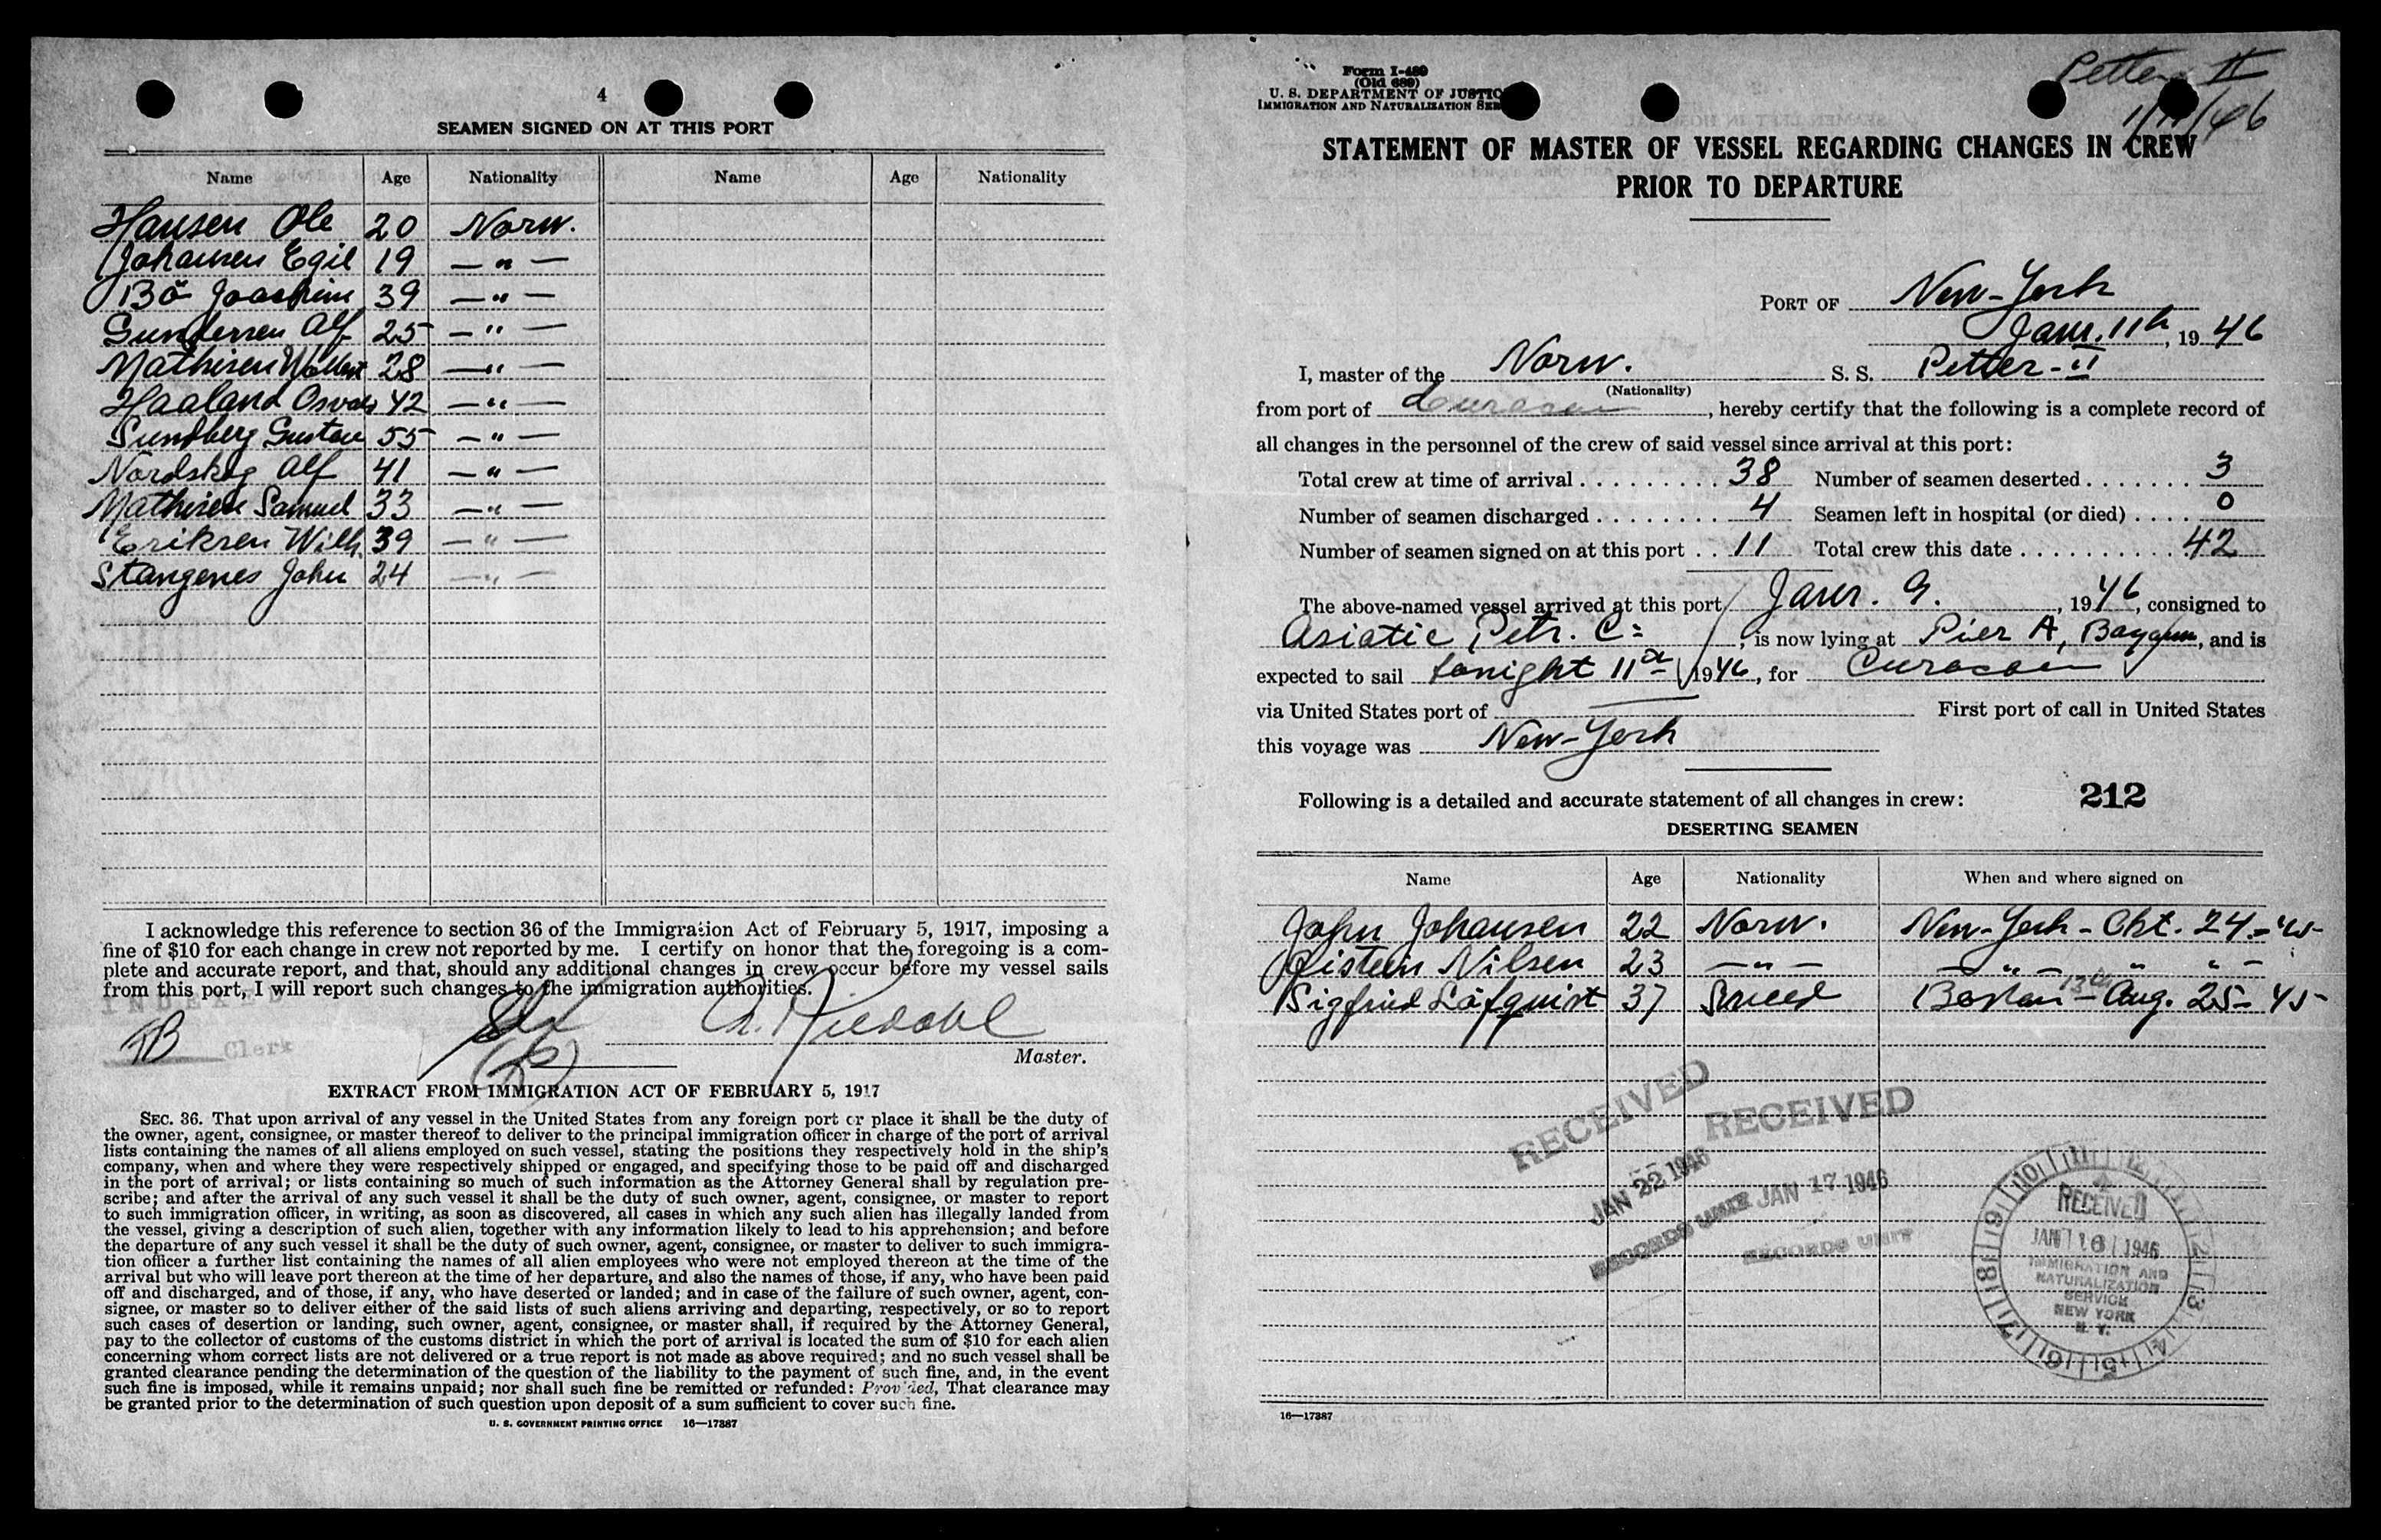 4
SEAMEN SIGNED ON AT THIS PORT
Name Age Nationality Name Age Nationality
Hansen Ole 20 Norw.
Johansen Egil 19 — " —
Bö Joachim 39 — " —
Gundersen Alf 25 — " —
Mathisen 28 — " —
Haaland Osvald 42 — " —
Sundberg Gustav 55 — " —
Nordskog Alf 41 — " —
Mathisen Samuel 33 — " —
Eriksen Wilh. 39 — " —
Stangenes John 24 — " —
I acknowledge this reference to section 36 of the Immigration Act of February 5, 1917, imposing a
fine of $10 for each change in crew not reported by me. I certify on honor that the foregoing is a com-
plete and accurate report, and that, should any additional changes in crew occur before my vessel sails
from this port, I will report such changes to the immigration authorities.
INDEXED
TB Clerk
Master.
EXTRACT FROM IMMIGRATION ACT OF FEBRUARY 5, 1917
SEC. 36. That upon arrival of any vessel in the United States from any foreign port or place it shall be the duty of
the owner, agent, consignee, or master thereof to deliver to the principal immigration officer in charge of the port of arrival
lists containing the names of all aliens employed on such vessel, stating the positions they respectively hold in the ship's
company, when and where they were respectively shipped or engaged, and specifying those to be paid off and discharged
in the port of arrival; or lists containing so much of such information as the Attorney General shall by regulation pre-
scribe; and after the arrival of any such vessel it shall be the duty of such owner, agent, consignee, or master to report
to such immigration officer, in writing, as soon as discovered, all cases in which any such alien has illegally landed from
the vessel, giving a description of such alien, together with any information likely to lead to his apprehension; and before
the departure of any such vessel it shall be the duty of such owner, agent, consignee, or master to deliver to such immigra-
tion officer a further list containing the names of all alien employees who were not employed thereon at the time of the
arrival but who will leave port thereon at the time of her departure, and also the names of those, if any, who have been paid
off and discharged, and of those, if any, who have deserted or landed; and in case of the failure of such owner, agent, con-
signee, or master so to deliver either of the said lists of such aliens arriving and departing, respectively, or so to report
such cases of desertion or landing, such owner, agent, consignee, or master shall, if required by the Attorney General,
pay to the collector of customs of the customs district in which the port of arrival is located the sum of $10 for each alien
concerning whom correct lists are not delivered or a true report is not made as above required; and no such vessel shall be
granted clearance pending the determination of the question of the liability to the payment of such fine, and, in the event
such fine is imposed, while it remains unpaid; nor shall such fine be remitted or refunded: Provided, That clearance may
be granted prior to the determination of such question upon deposit of a sum sufficient to cover such fine.
U. S. GOVERNMENT PRINTING OFFICE 16—17387
Petter II
1/11/46
Form I-489
(Old 689)
U. S. DEPARTMENT OF JUSTIC
IMMIGRATION AND NATURALIZATION SER
STATEMENT OF MASTER OF VESSEL REGARDING CHANGES IN CREW
PRIOR TO DEPARTURE
PORT OF New-York
Janr. 11th, 1946
I, master of the Norw. S. S. Petter-II
(Nationality)
from port of Curacao, hereby certify that the following is a complete record of
all changes in the personnel of the crew of said vessel since arrival at this port:
Total crew at time of arrival . . . . . . . . . . 38 Number of seamen deserted . . . . . . . 3
Number of seamen discharged . . . . . . . . 4 Seamen left in hospital (or died) . . . . 0
Number of seamen signed on at this port . . 11 Total crew this date . . . . . . . . . . 42
The above-named vessel arrived at this port Janr. 9., 1946, consigned to
Asiatic Petr. Co, is now lying at Pier A, Bayonne, and is
expected to sail tonight 11th 1946, for Curacao
via United States port of — First port of call in United States
this voyage was New-York
Following is a detailed and accurate statement of all changes in crew: 212
DESERTING SEAMEN
Name Age Nationality When and where signed on
John Johansen 22 Norw. New-York - Okt. 24 - 45
Öistein Nilsen 23 — " — — " — " " —
Sigfrid Löfquist 37 Sweed Boston - Aug. 25 - 45
13th
RECEIVED
JAN 22 1946
RECORDS UNIT
RECEIVED
JAN 17 1946
RECORDS UNIT
RECEIVED
JAN 16 1946
IMMIGRATION AND
NATURALIZATION
SERVICE
NEW YORK
N. Y.
16—17387